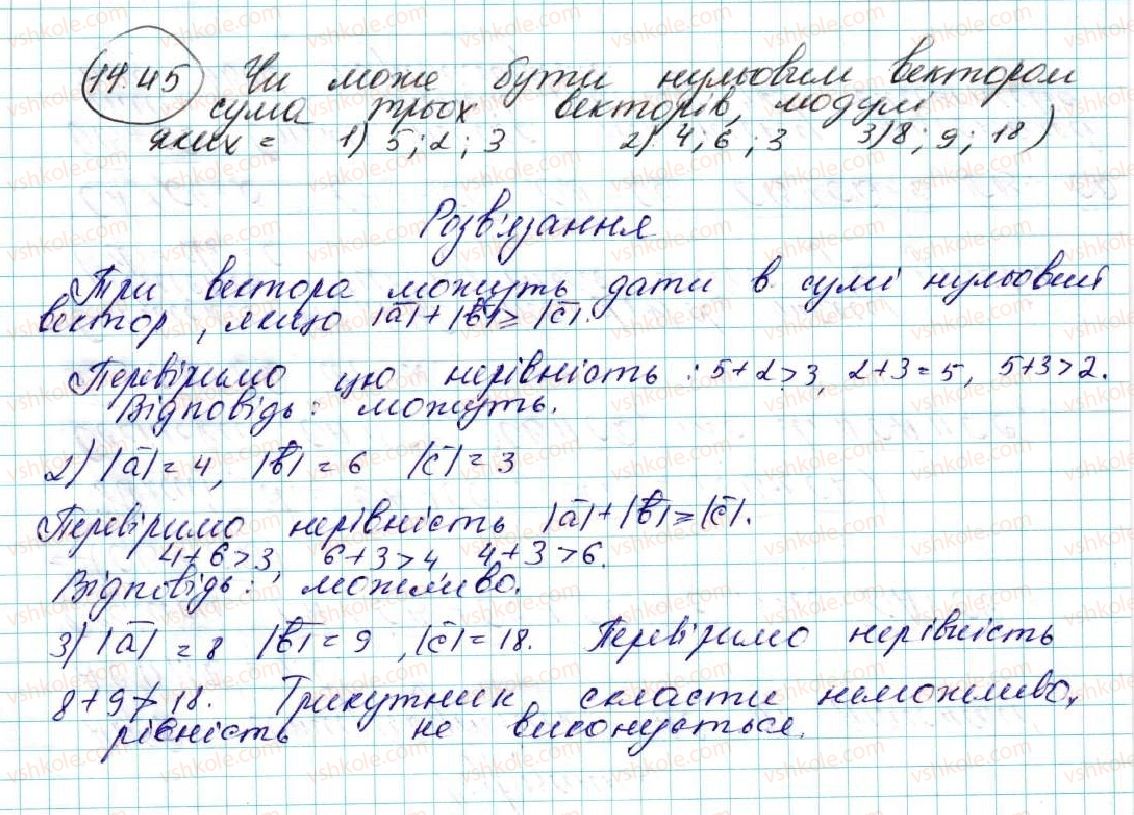 14.45 Чи може бути нульовим вектором
сума трьох векторів, модулі
яких = 1) 5; 2; 3 2) 4; 6; 3 3) 8; 9; 18)
Розв'язання
Три вектора можуть дати в сумі нульовий
вектор, якщо |a̅|+|b̅|≥|c̅|.
Перевіримо цю нерівність: 5+2>3, 2+3=5, 5+3>2.
Відповідь: можуть.
2) |a̅|=4, |b̅|=6 |c̅|=3
Перевіримо нерівність |a̅|+|b̅|≥|c̅|.
4+6>3, 6+3>4 4+3>6.
Відповідь: можливо.
3) |a̅|=8 |b̅|=9, |c̅|=18. Перевіримо нерівність
8+9≯18. Трикутник скласти неможливо,
рівність не виконується.